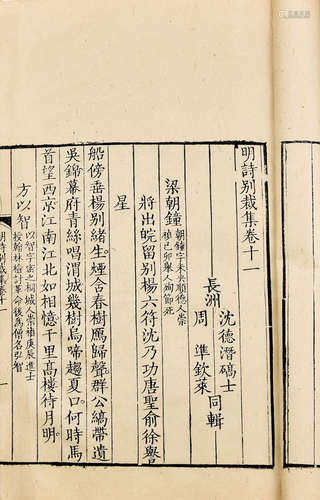 明詩別裁集卷十一
長洲 沈德潛碻士 周準欽萊 同輯
梁朝鐘
將出皖留別楊六符沈乃功唐聖俞徐譽
星
船傍垂楊別緒生煙含春樹鷹歸聲群公縞帶遺
吳錦幕府青絲唱渭城幾樹烏啼趨夏口何時馬
首望西京江南江北如相憶千里高樓待月明
方以智
以智字密之桐城人崇禎庚辰進士
授翰林檢討革命後為僧名弘智
明詩別裁集卷十一